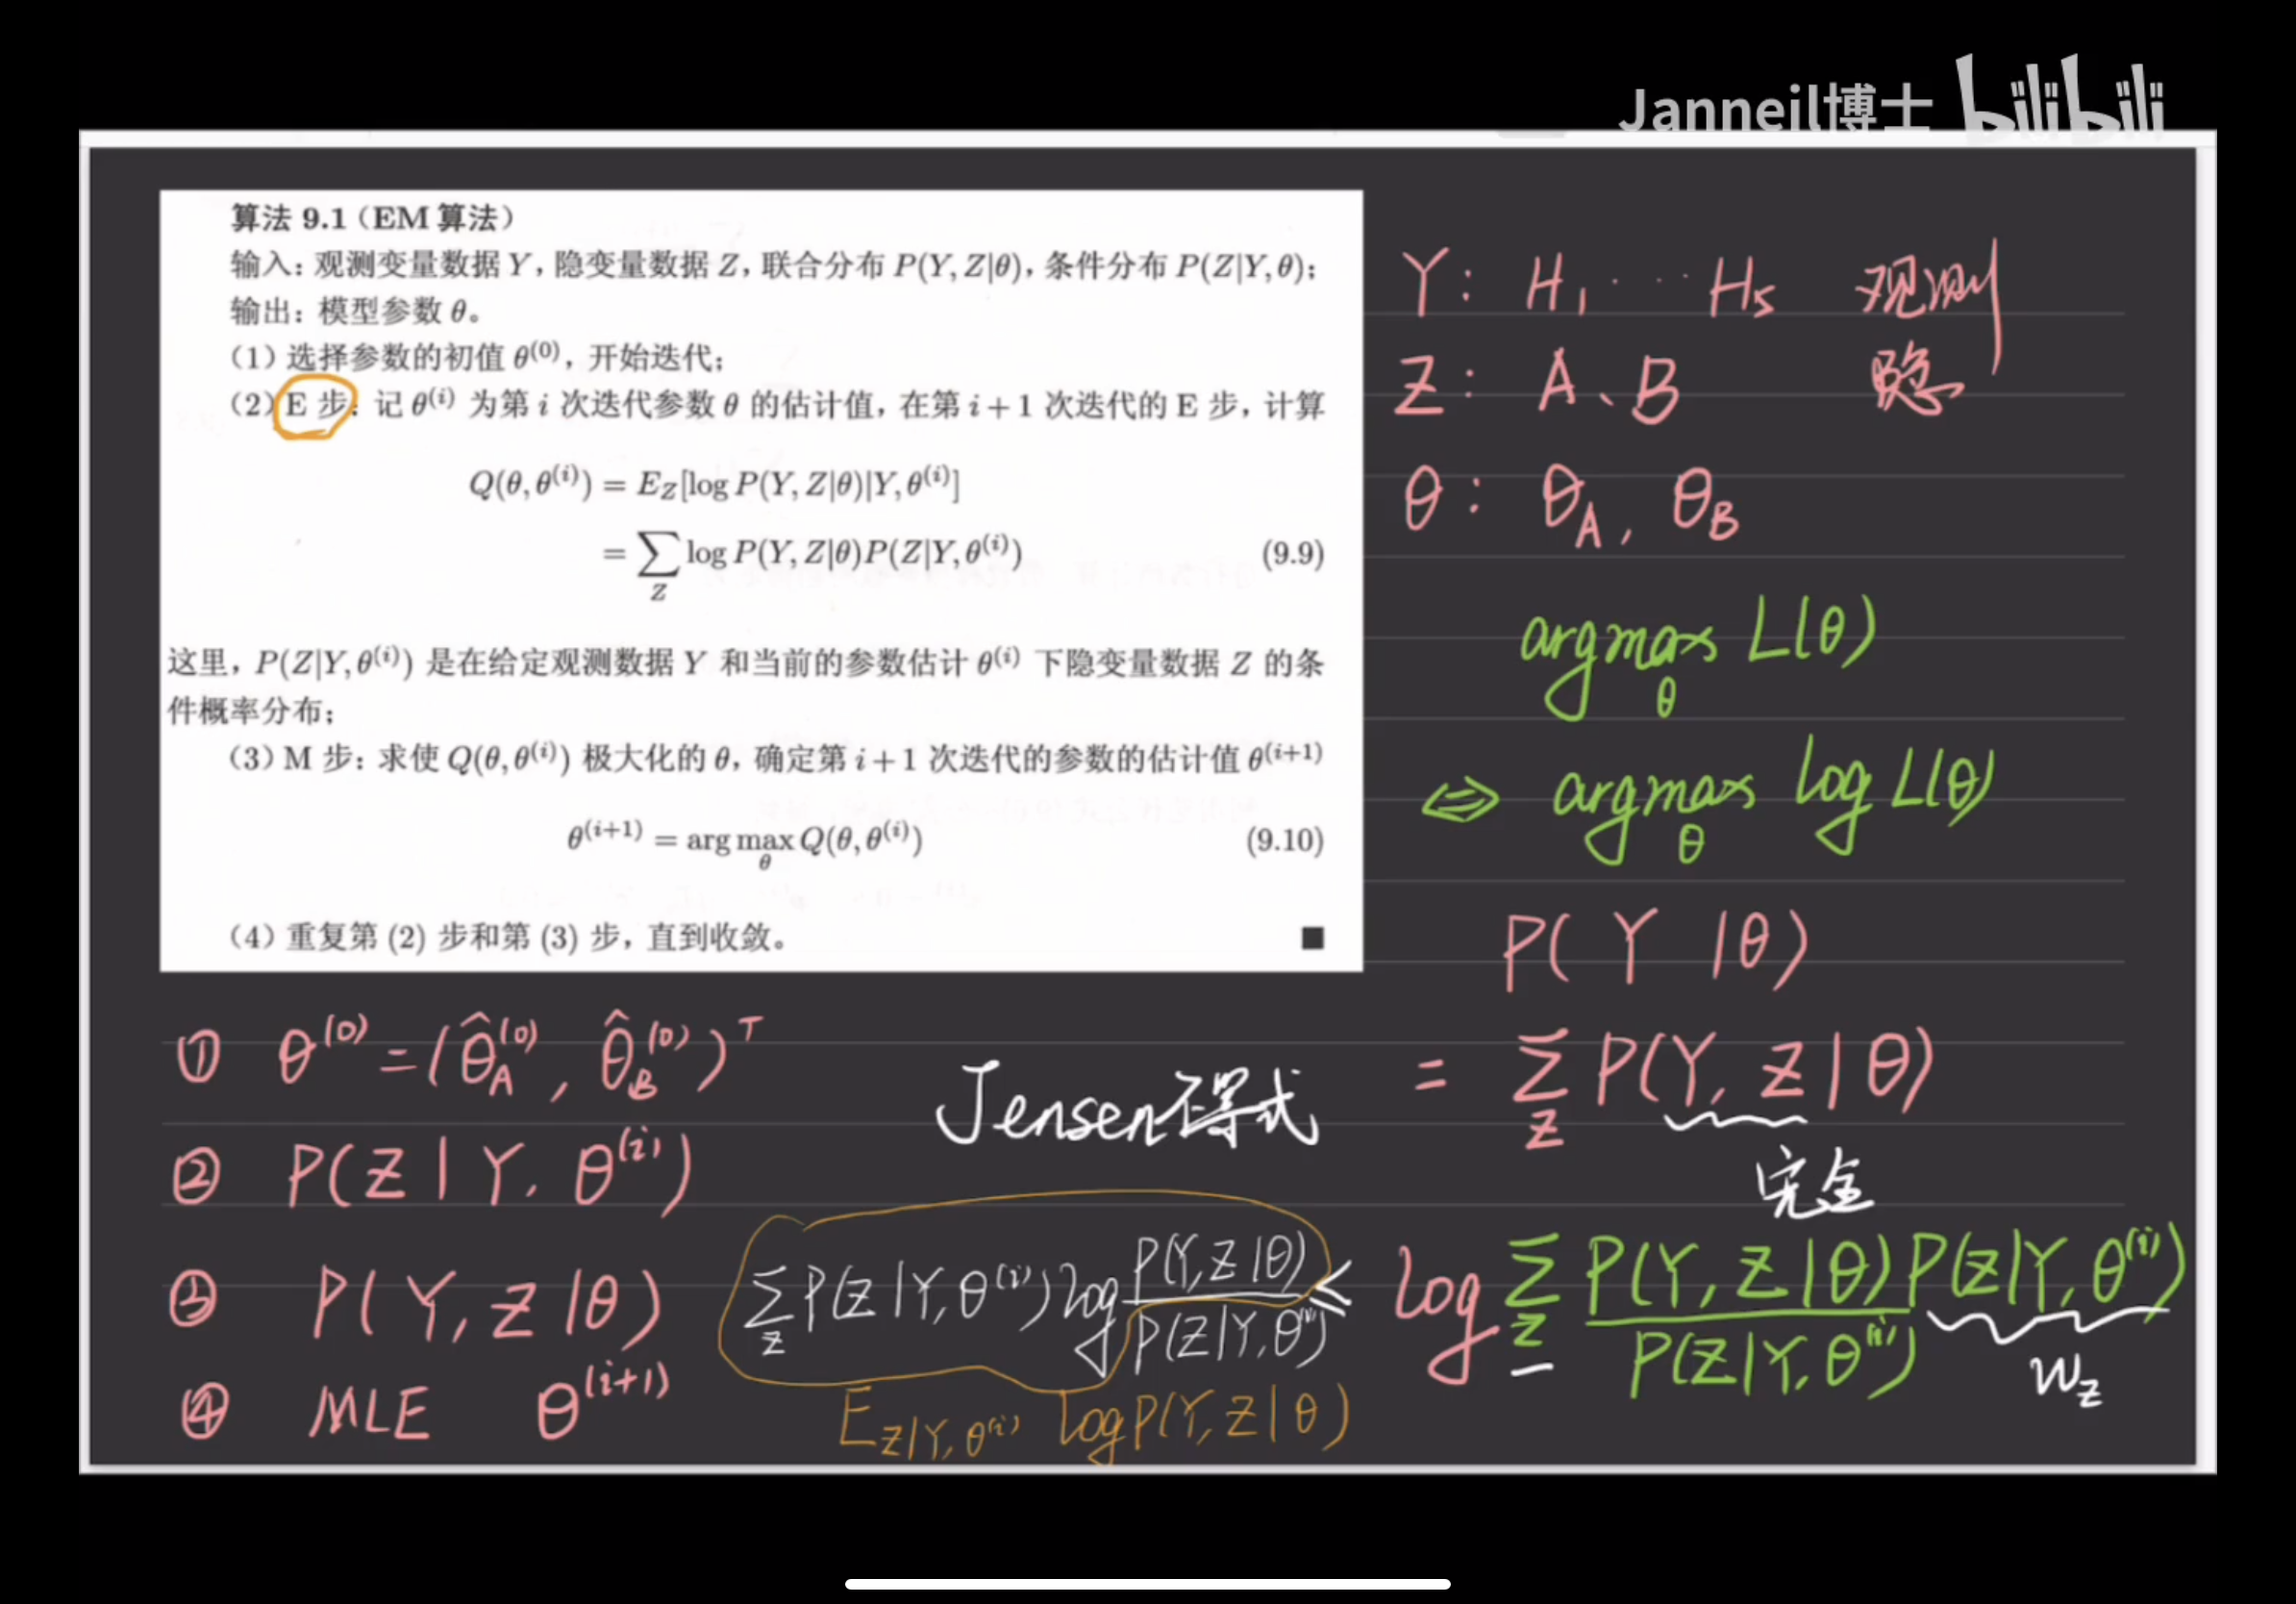 Janneil博士 bilibili
算法 9.1（EM 算法）
输入：观测变量数据 Y，隐变量数据 Z，联合分布 P(Y, Z|θ)，条件分布 P(Z|Y, θ)；
输出：模型参数 θ。
（1）选择参数的初值 θ^(0)，开始迭代；
（2）E 步：记 θ^(i) 为第 i 次迭代参数 θ 的估计值，在第 i + 1 次迭代的 E 步，计算
Q(θ, θ^(i)) = E_Z[log P(Y, Z|θ)|Y, θ^(i)]
= ∑_Z log P(Y, Z|θ)P(Z|Y, θ^(i)) (9.9)
这里，P(Z|Y, θ^(i)) 是在给定观测数据 Y 和当前的参数估计 θ^(i) 下隐变量数据 Z 的条
件概率分布；
（3）M 步：求使 Q(θ, θ^(i)) 极大化的 θ，确定第 i + 1 次迭代的参数的估计值 θ^(i+1)
θ^(i+1) = arg max_θ Q(θ, θ^(i)) (9.10)
（4）重复第 (2) 步和第 (3) 步，直到收敛。 ■
Y: H₁ ··· H₅ 观测
Z: A、B 隐
θ: θ_A, θ_B
argmax_θ L(θ)
⇔ argmax_θ log L(θ)
P( Y |θ)
= ∑_Z P(Y, Z|θ)
完全
log ∑_Z P(Y, Z|θ) / P(Z|Y, θ^(i)) P(Z|Y, θ^(i))
W_Z
① θ^(0) = (θ̂_A^(0), θ̂_B^(0))^T
② P(Z|Y, θ^(i))
③ P(Y, Z|θ)
④ MLE θ^(i+1)
Jensen不等式
∑_Z P(Z|Y, θ^(i)) log P(Y, Z|θ) / P(Z|Y, θ^(i)) ≤
E_Z|Y, θ^(i) log P(Y, Z|θ)